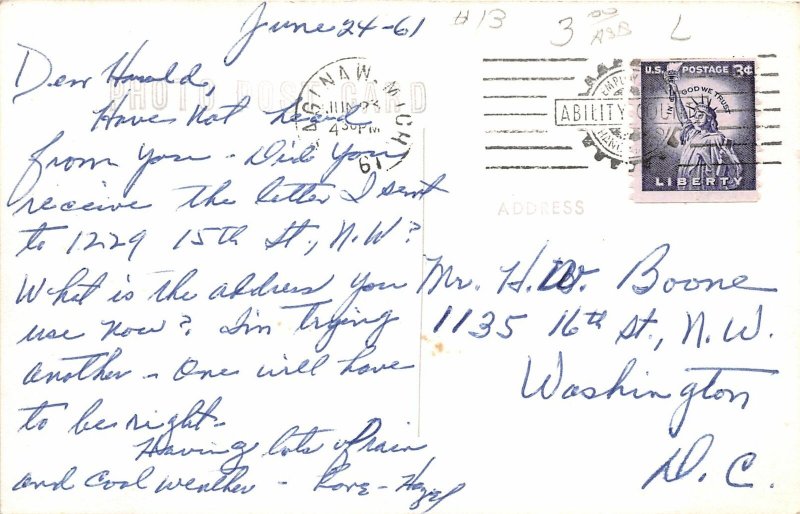 June 24-61
#13
3 00
L
Dear Harold,
PHOTO POST CARD
SAGINAW, MICH
JUN 23
4 30 PM
61
U.S. POSTAGE 3¢
IN GOD WE TRUST
LIBERTY
ABILITY COUNTS
ADDRESS
Have Not heard
from you - Did you
receive the letter I sent
to 1229 15th St., N.W?
What is the address you
use now? I'm trying
another - One will have
to be right -
Having lots of rain
and cool weather - Love - Hazel
Mr. H.W. Boone
1135 16th St., N.W.
Washington
D.C.